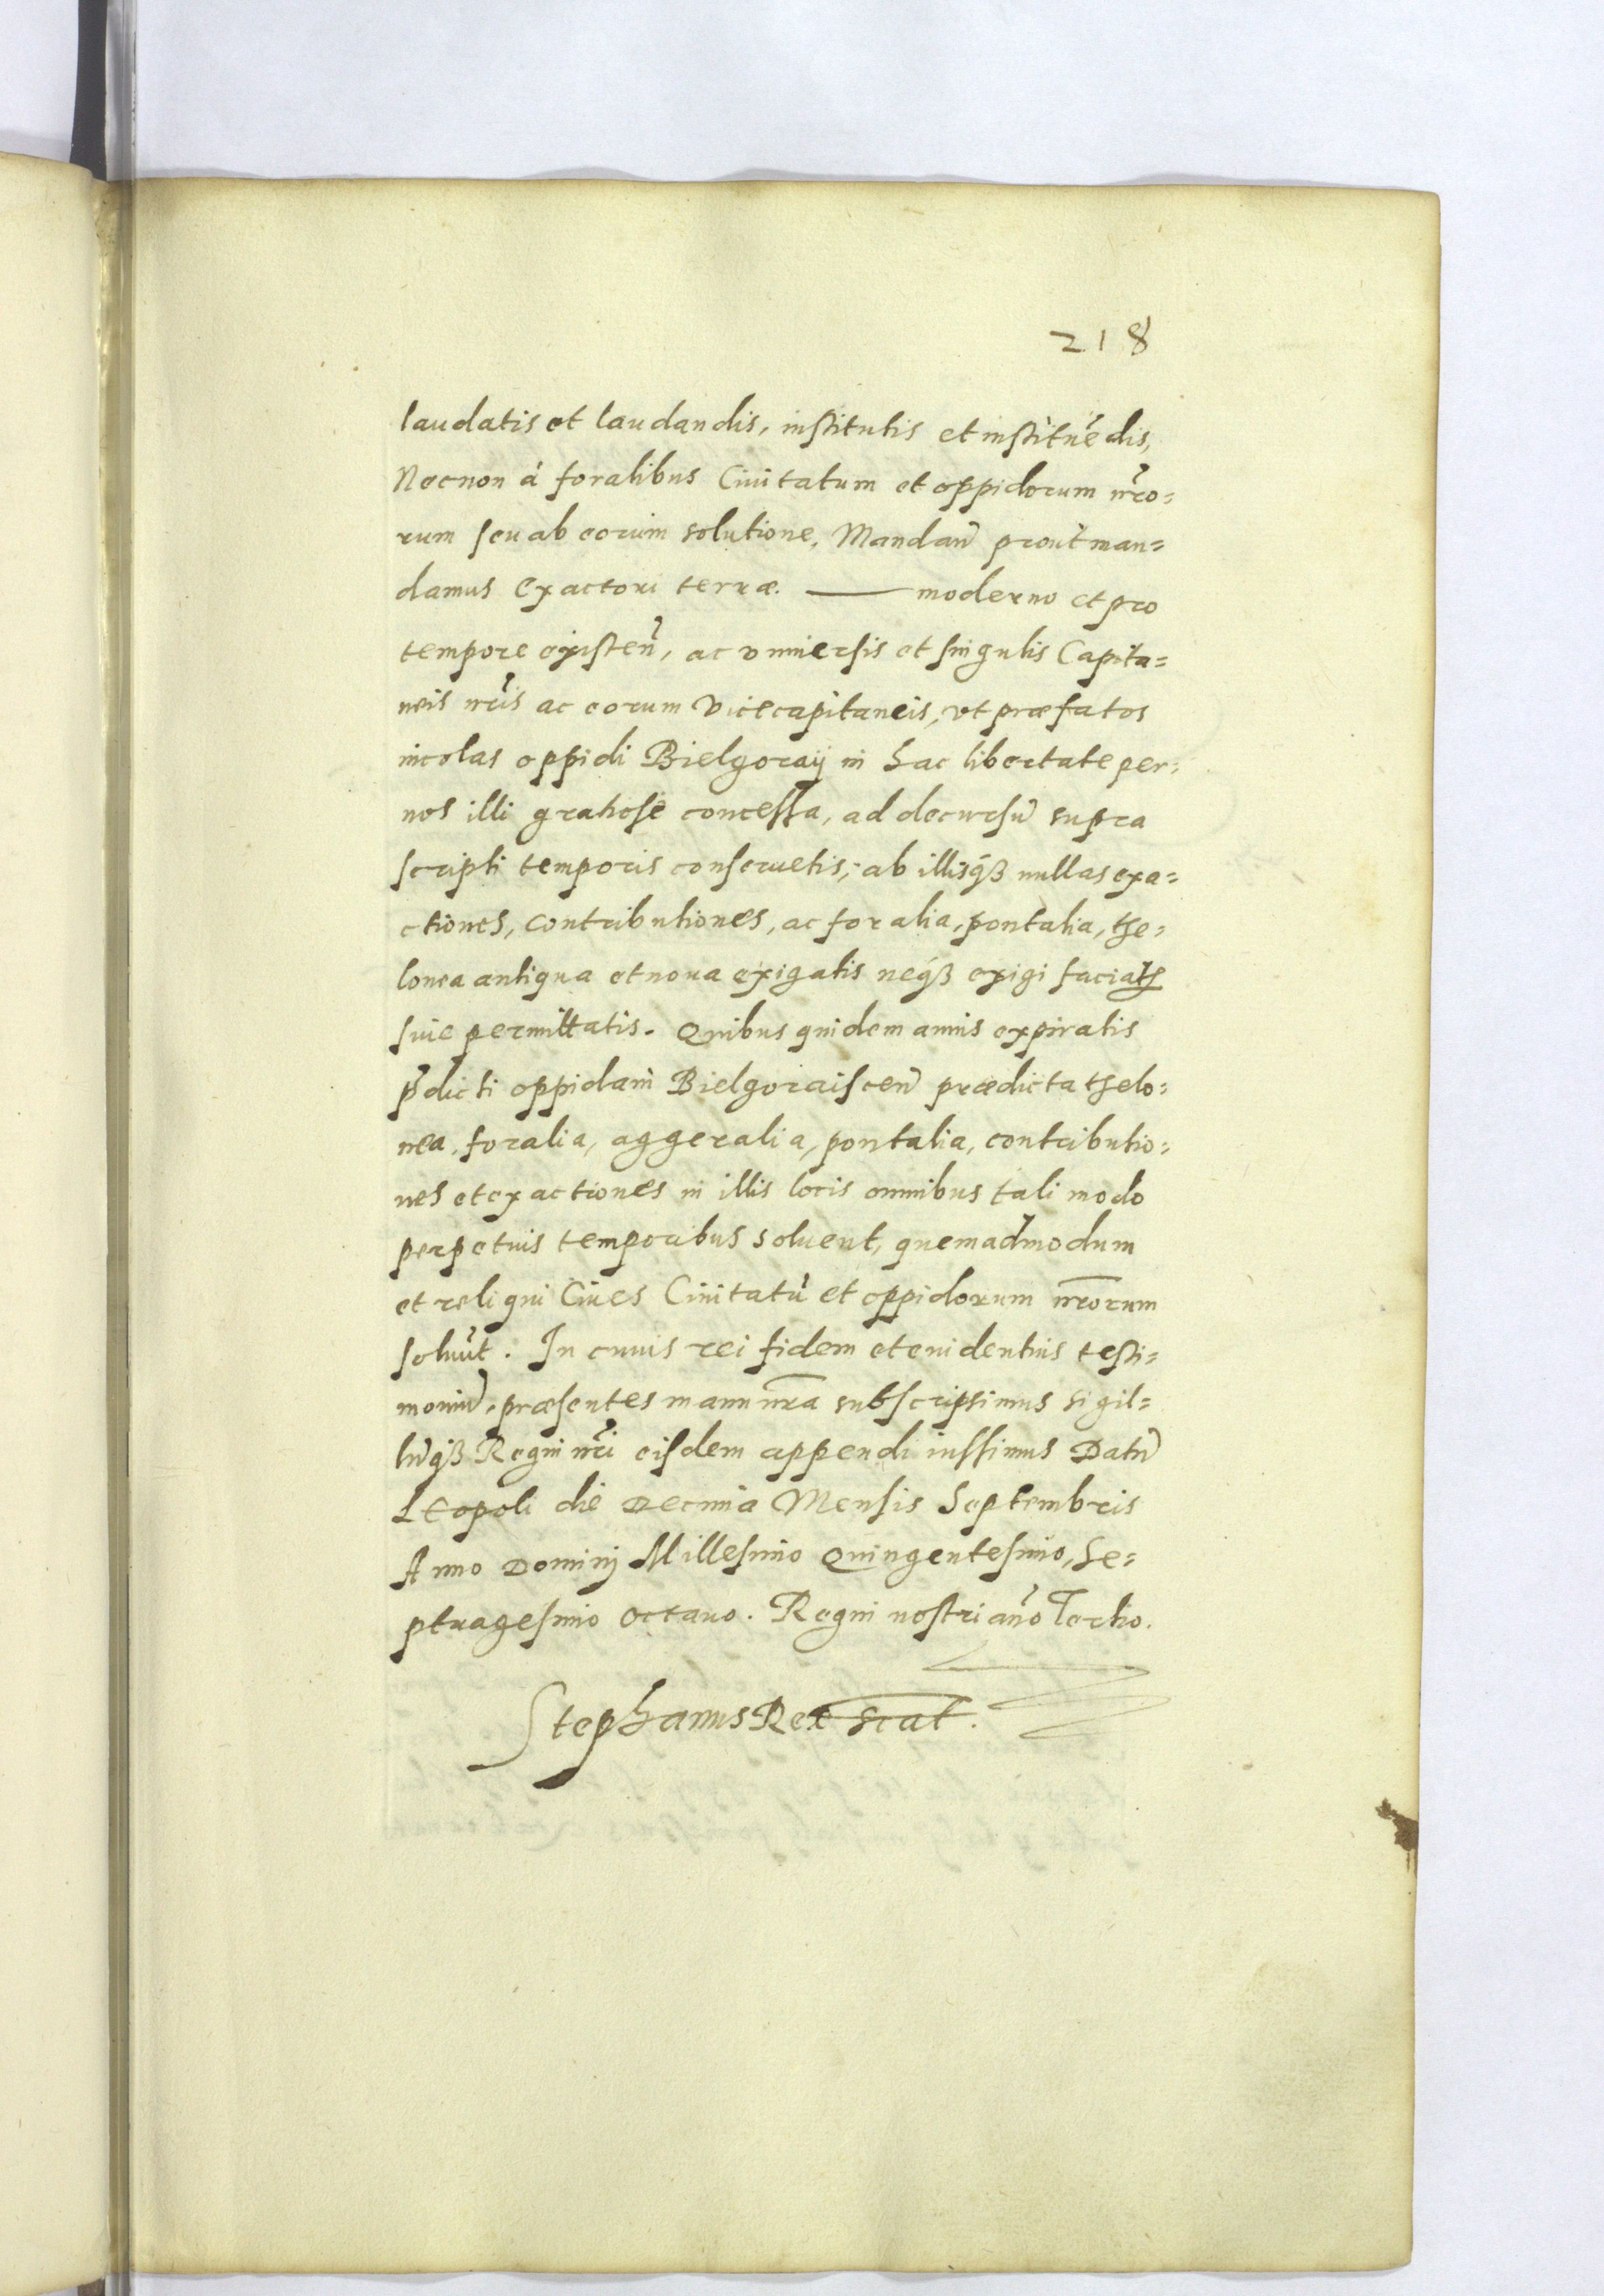 218
laudatis et laudandis, institutis et instituēdis,
Necnon à foralibus Ciuitatum et oppidorum nr̃o=
rum seu ab eorum solutione. Mandañ prout man=
damus Exactori terræ. —— moderno et pro
tempore existeñ, ac vniuersis et singulis Capita=
neis nr̃is ac eorum Vicecapitaneis, vt præfatos
incolas oppidi Bielgoraij in hac libertate per=
nos illi gratiose concessa, ad decursũ supra
scripti temporis conseruetis, ab illisqꝫ nullas exa=
ctiones, contributiones, ac foralia, pontalia, the=
lonea antiqua et noua exigatis neqꝫ exigi faciatis
siue permittatis. Quibus quidem annis expiratis
p̃dicti oppidani Bielgoraisceñ prædicta thelo=
nea, foralia, aggeralia, pontalia, contributio=
nes et exactiones in illis locis omnibus tali modo
perpetuis temporibus soluent, quemadmodum
et reliqui Ciues Ciuitatũ et oppidorum nr̃orum
soluũt. In cuius rei fidem et euidentius testi=
moniũ, præsentes manu nr̃a subscripsimus sigil=
lũqꝫ Regni nr̃i eisdem appendi iussimus Datũ
Leopoli die Decima Mensis Septembris
Anno Dominj Millesimo Quingentesimo, Se=
ptuagesimo octauo. Regni nostri año Tertio.
Stephanus Rex